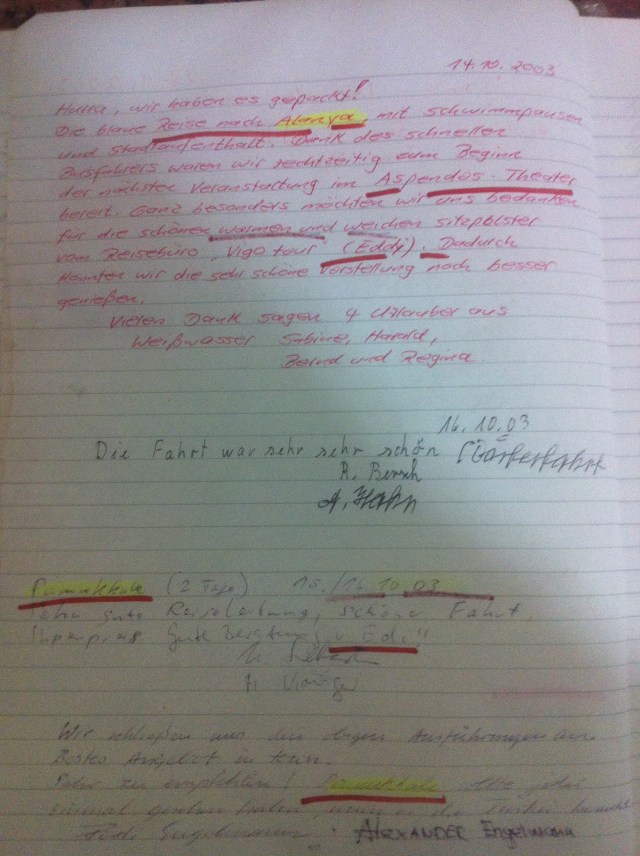 14.10.2003
Hurra, wir haben es gepackt!
Die blaue Reise nach Alanya, mit schwimmpausen
und stadtaufenthalt. Dank des schnellen
Busfahrers waren wir rechtzeitig zum Beginn
der nächsten Veranstaltung im Aspendos-Theater
bereit. Ganz besonders möchten wir uns bedanken
für die schönen warmen und weichen sitzpolster
vom Reisebüro, Vigo tour (Eddy). Dadurch
konnten wir die sehr schöne Vorstellung noch besser
genießen.
Vielen Dank sagen 4 Urlauber aus
Weißwasser Sabine, Harald,
Bernd und Regina.
16.10.03
Die Fahrt war sehr sehr schön (Dörferfahrt
A. Hahn
Pamukkale (2 Tage) 15./16.10.03
Sehr gute Reiseleitung, schöne Fahrt,
Gute Beratung v. Edi"
Wir schließen uns den obigen Ausführungen an.
Bestes Angebot in
Sehr zu empfehlen! Pamukkale sollte jeder
einmal gesehen haben, wenn er die Türkei
Engelmann. ALEXANDER Engelmann